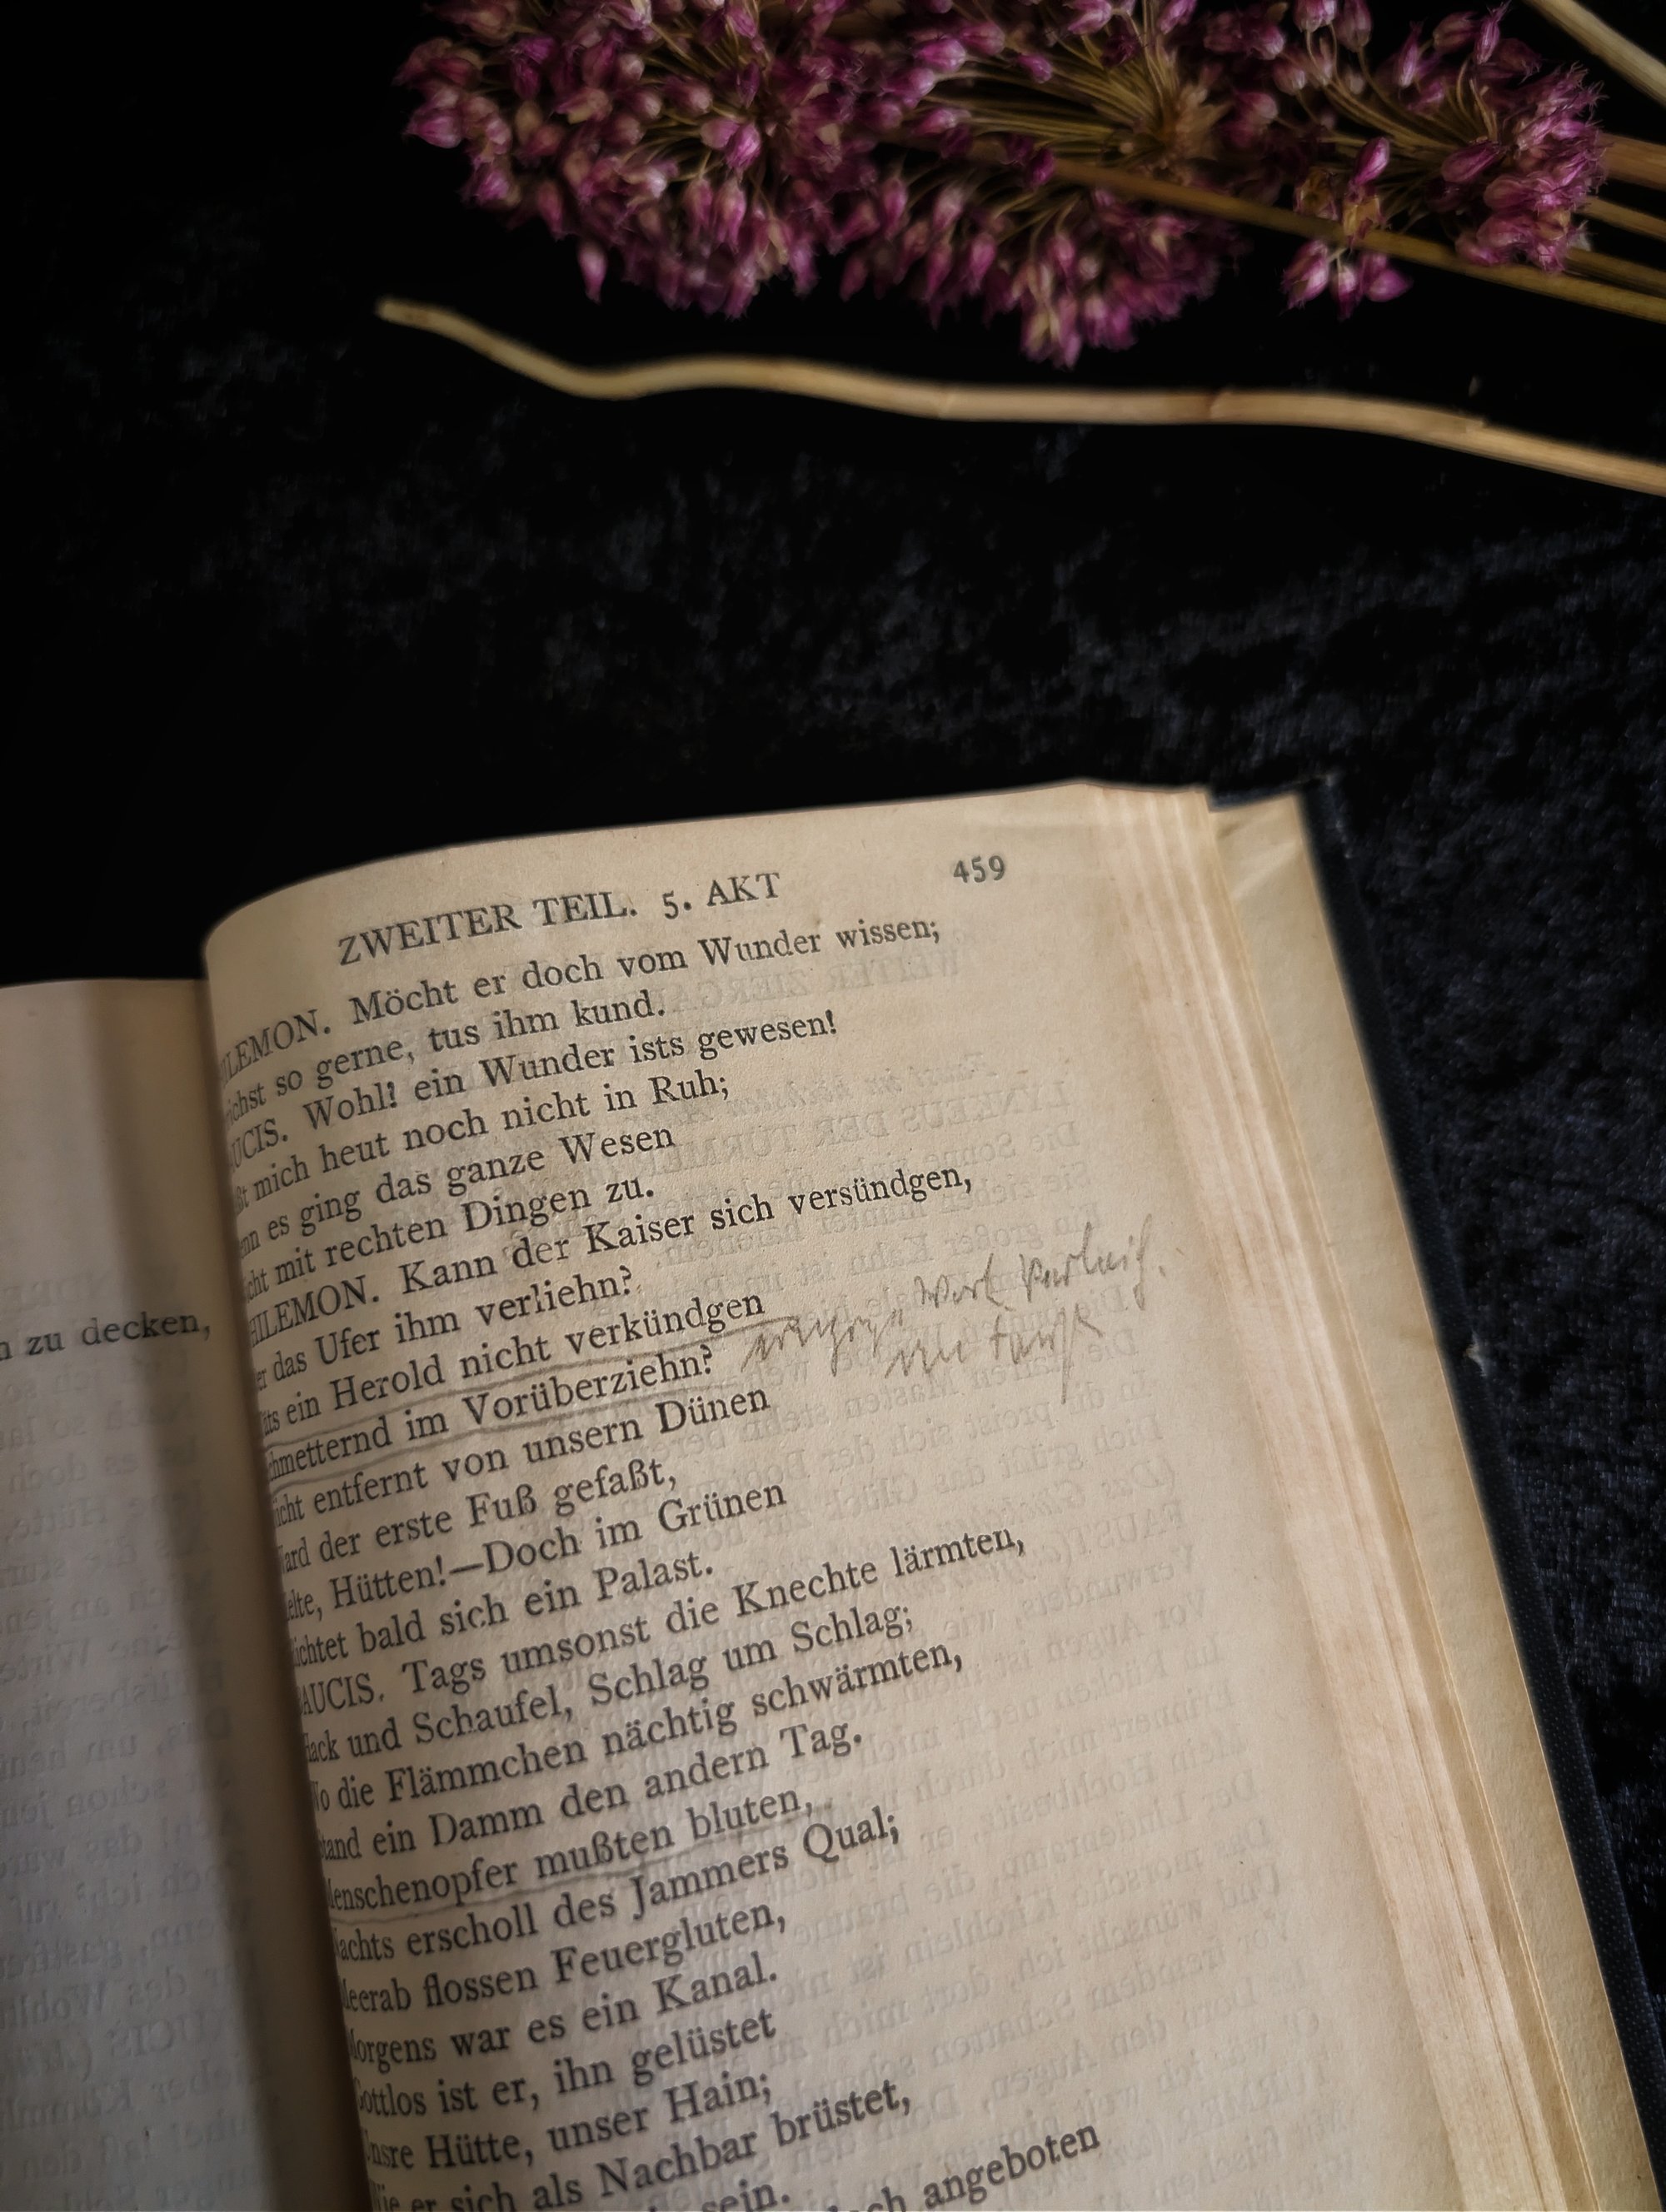 n zu decken,
ZWEITER TEIL. 5. AKT 459
ILEMON. Möcht er doch vom Wunder wissen;
ichst so gerne, tus ihm kund.
UCIS. Wohl! ein Wunder ists gewesen!
ßt mich heut noch nicht in Ruh;
nn es ging das ganze Wesen
cht mit rechten Dingen zu.
HILEMON. Kann der Kaiser sich versündgen,
er das Ufer ihm verliehn?
äts ein Herold nicht verkündgen
chmetternd im Vorüberziehn?
icht entfernt von unsern Dünen
Ward der erste Fuß gefaßt,
elte, Hütten!—Doch im Grünen
ichtet bald sich ein Palast.
AUCIS. Tags umsonst die Knechte lärmten,
Hack und Schaufel, Schlag um Schlag;
Wo die Flämmchen nächtig schwärmten,
tand ein Damm den andern Tag.
Menschenopfer mußten bluten,
Nachts erscholl des Jammers Qual;
Meerab flossen Feuergluten,
Morgens war es ein Kanal.
Gottlos ist er, ihn gelüstet
Unsre Hütte, unser Hain;
Wie er sich als Nachbar brüstet,
sein.
ch angeboten